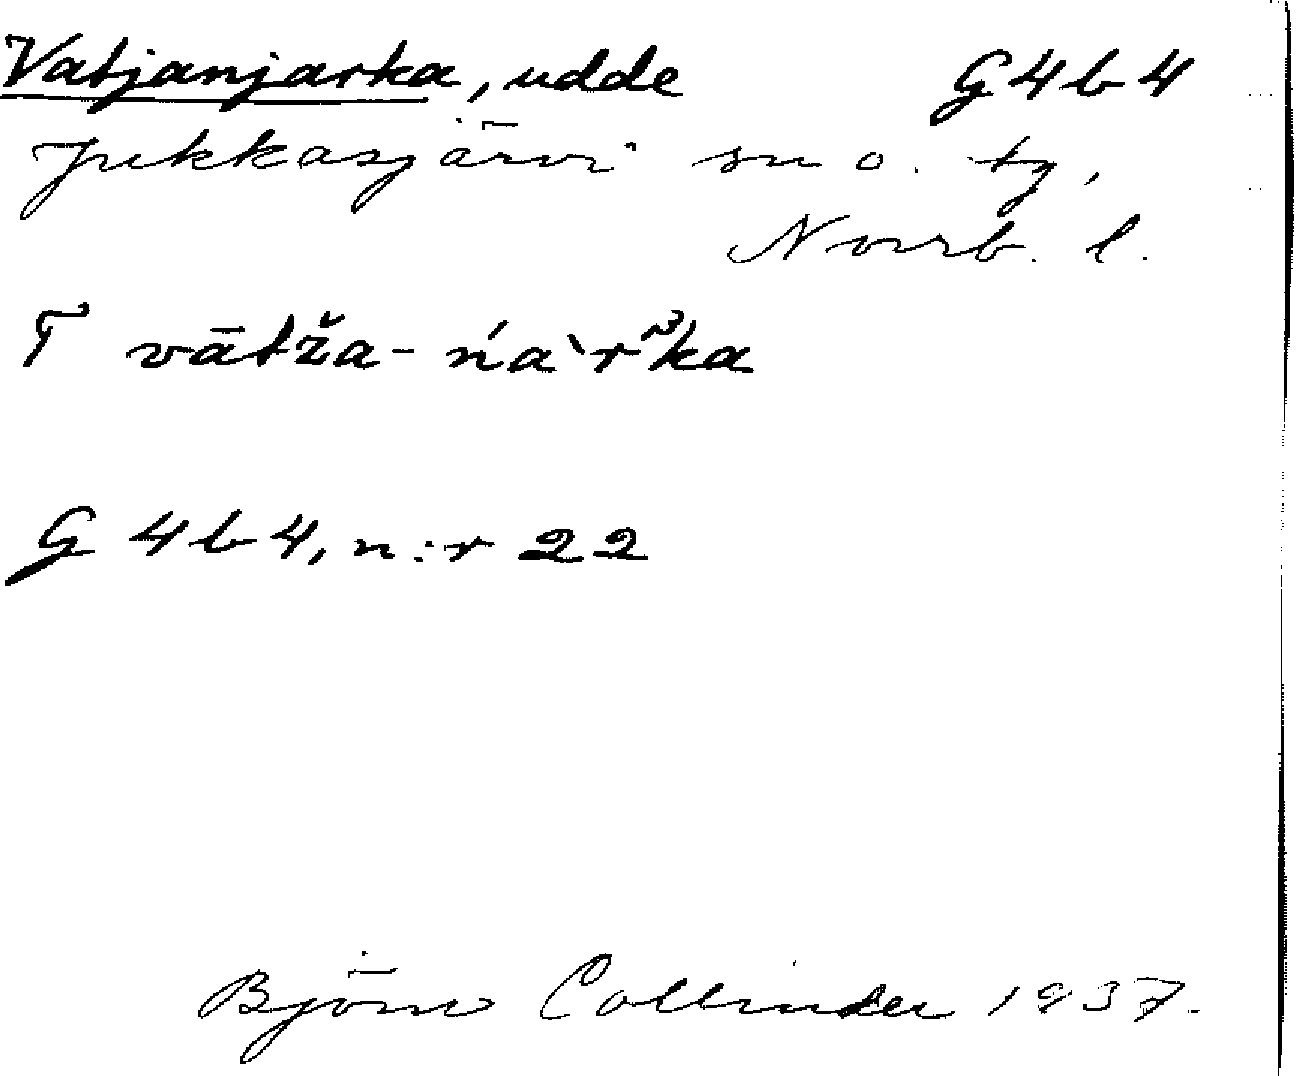 Vatjanjarka, udde G4b4
Jukkasjärvi sn o. tg,
Norrb. l.
T vātža-ńaˋrˀka
G 4b4, n:r 22
Björn Collinder 1937.